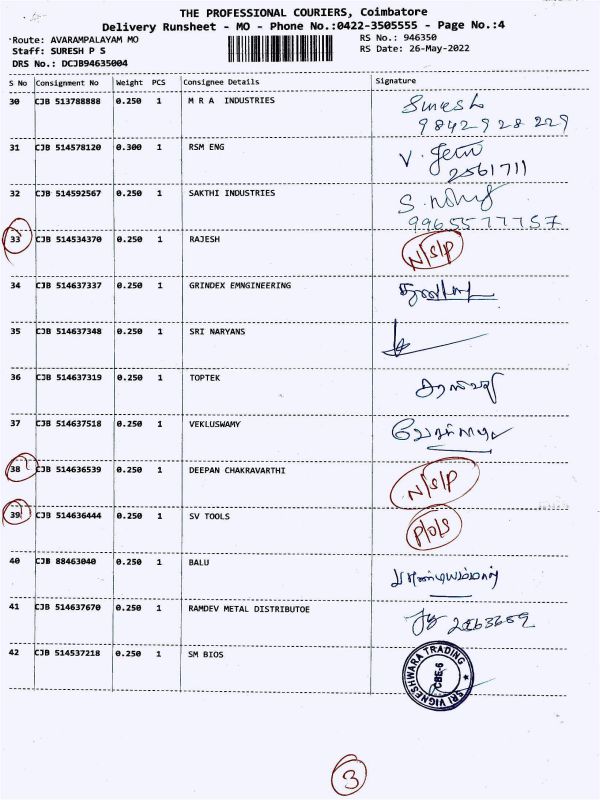 THE PROFESSIONAL COURIERS, Coimbatore
Delivery Runsheet - MO - Phone No.:0422-3505555 - Page No.:4
Route: AVARAMPALAYAM MO RS No.: 946350
Staff: SURESH P S RS Date: 26-May-2022
DRS No.: DCJB94635004
S No Consignment No Weight PCS Consignee Details Signature
30 CJB 513788888 0.250 1 M R A INDUSTRIES Suresh
9842928229
31 CJB 514578120 0.300 1 RSM ENG
2561711
32 CJB 514592567 0.250 1 SAKTHI INDUSTRIES
9965577757
33 CJB 514534370 0.250 1 RAJESH N/S/P
34 CJB 514637337 0.250 1 GRINDEX EMNGINEERING
35 CJB 514637348 0.250 1 SRI NARYANS
36 CJB 514637319 0.250 1 TOPTEK
37 CJB 514637518 0.250 1 VEKLUSWAMY
38 CJB 514636539 0.250 1 DEEPAN CHAKRAVARTHI N/S/P
39 CJB 514636444 0.250 1 SV TOOLS P/O/S
40 CJB 88463040 0.250 1 BALU
41 CJB 514637670 0.250 1 RAMDEV METAL DISTRIBUTOE 2563659
42 CJB 514537218 0.250 1 SM BIOS
SRI VIGNESHWARA TRADING
CBE-6
3